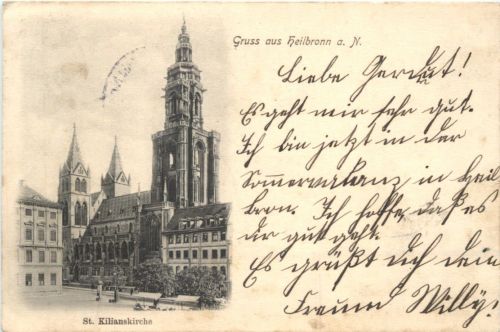 Gruss aus Heilbronn a. N.
Liebe Gerdut!
Es geht mir sehr gut.
Ich bin jetzt in der
Sommervakanz in Heil
bron. Ich hoffe, daß es
dir gut geht.
Es grüßt dich dein
Freund Willy!
St. Kilianskirche